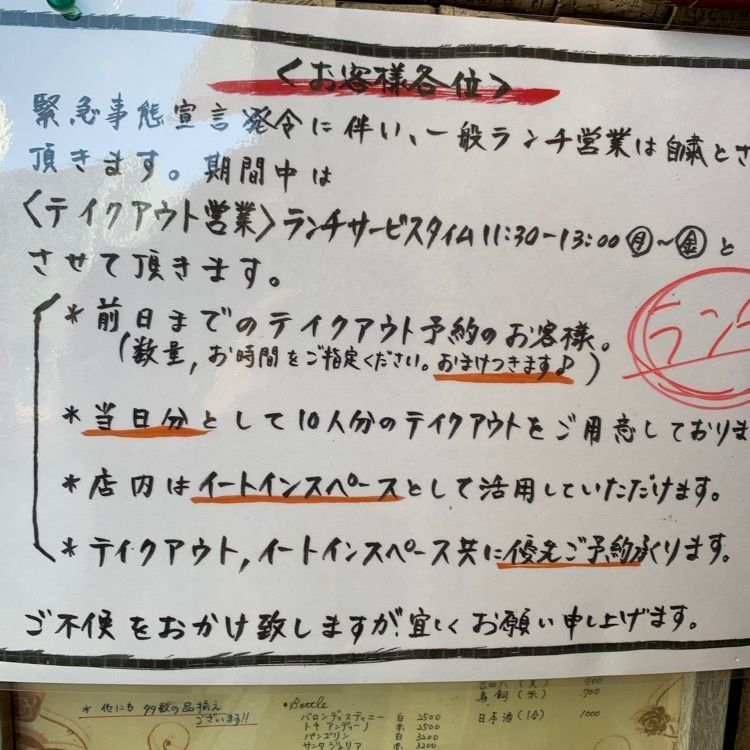 <お客様各位>
緊急事態宣言発令に伴い、一般ランチ営業は自粛とさ
頂きます。期間中は
<テイクアウト営業>ランチサービスタイム11:30-13:00㊊~㊎と
させて頂きます。
*前日までのテイクアウト予約のお客様。
(数量,お時間をご指定ください。おまけつきます♪)
ラン
*当日分として10人分のテイクアウトをご用意しておりま
*店内はイートインスペースとして活用していただけます。
*テイクアウト,イートインスペース共に優先ご予約承ります。
ご不便をおかけ致しますが宜しくお願い申し上げます。
*他にも99款の品揃え
ございます!!
・Bottle
バロンディスティニー 白 2500
トキアンディーノ 赤 2500
パンゴリン 白 3200
赤 3200
900
鳥飼(米) 700
日本酒(1合) 1000